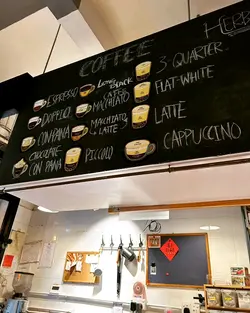 COFFEE
ESPRESSO
DOPPIO
CON PANA
CHOCOLATE
CON PANA
LONG BLACK
CAFFE
MACCHIATO
MACCHIATO
LATTE
PICCOLO
3 QUARTER
FLAT-WHITE
LATTE
CAPPUCCINO